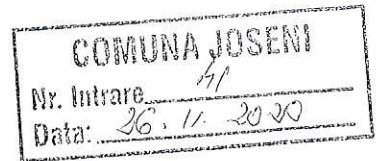 COMUNA JOSENI
Nr. Intrare 41
Data: 26. 11. 2020